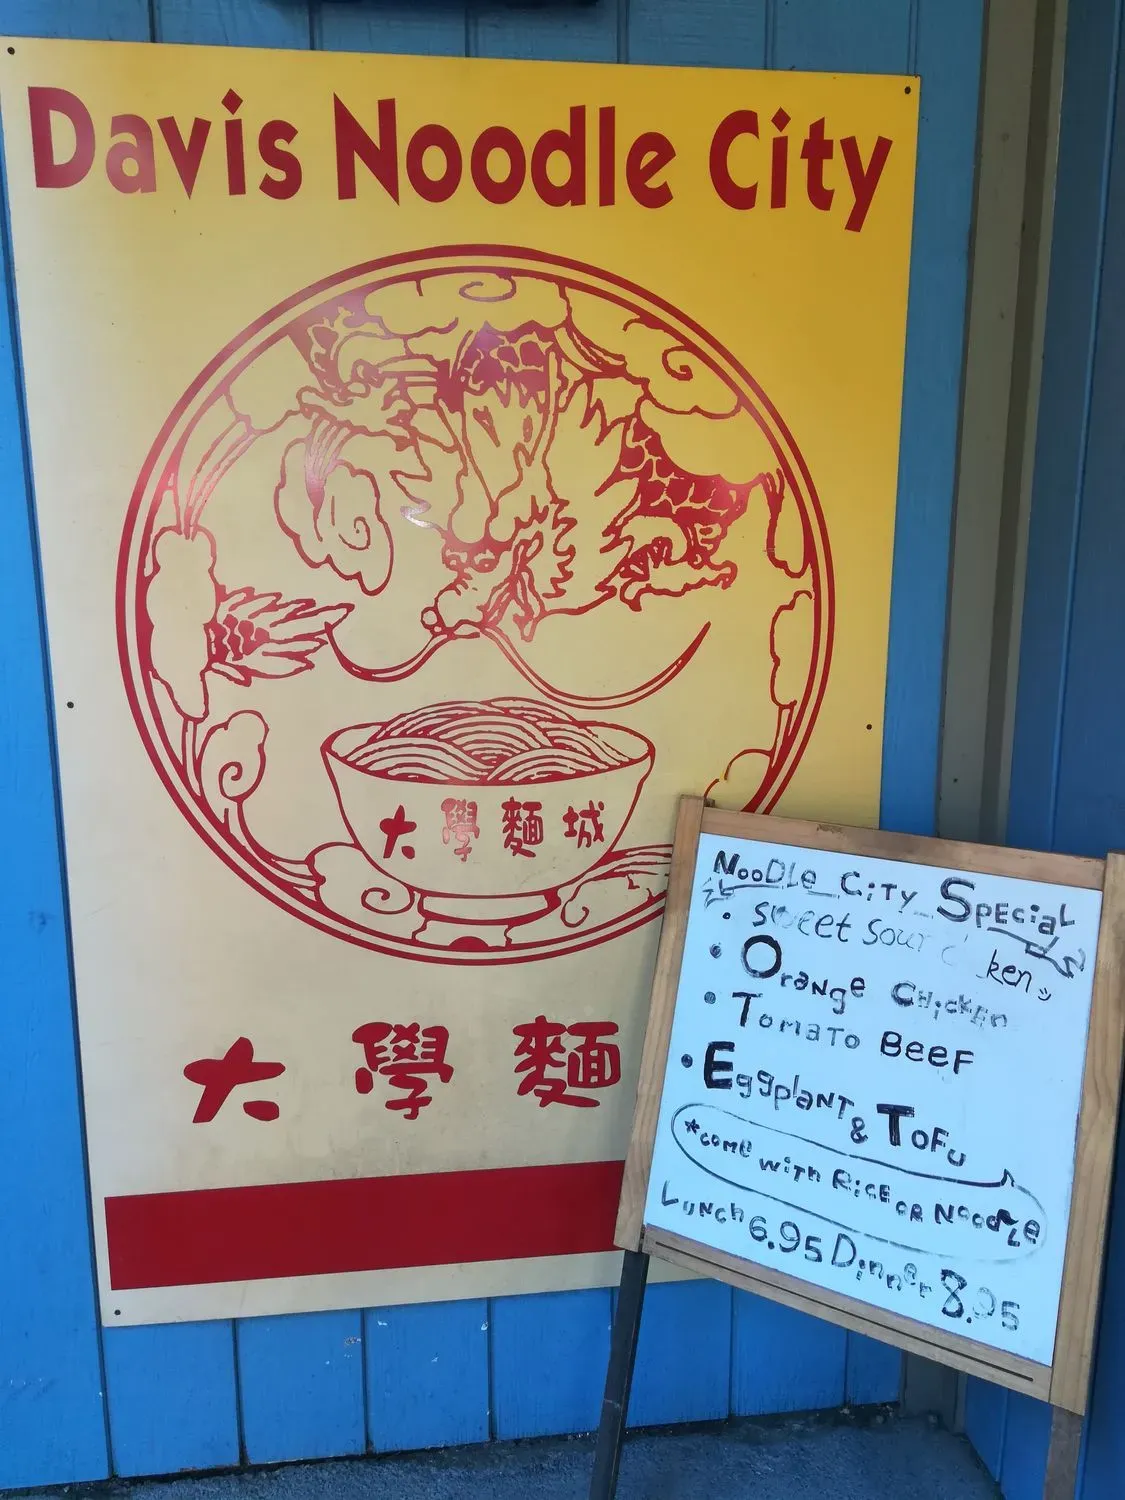 Davis Noodle City
大學麵城
大學麵
NOODLE CITY SPECIAL
• Sweet Sour
• Orange CHicken
• Tomato BEEF
• EggplanT & TOFU
*COME WiTH RICE OR NOODLE
LUNCH 6.95 Dinner 8.95